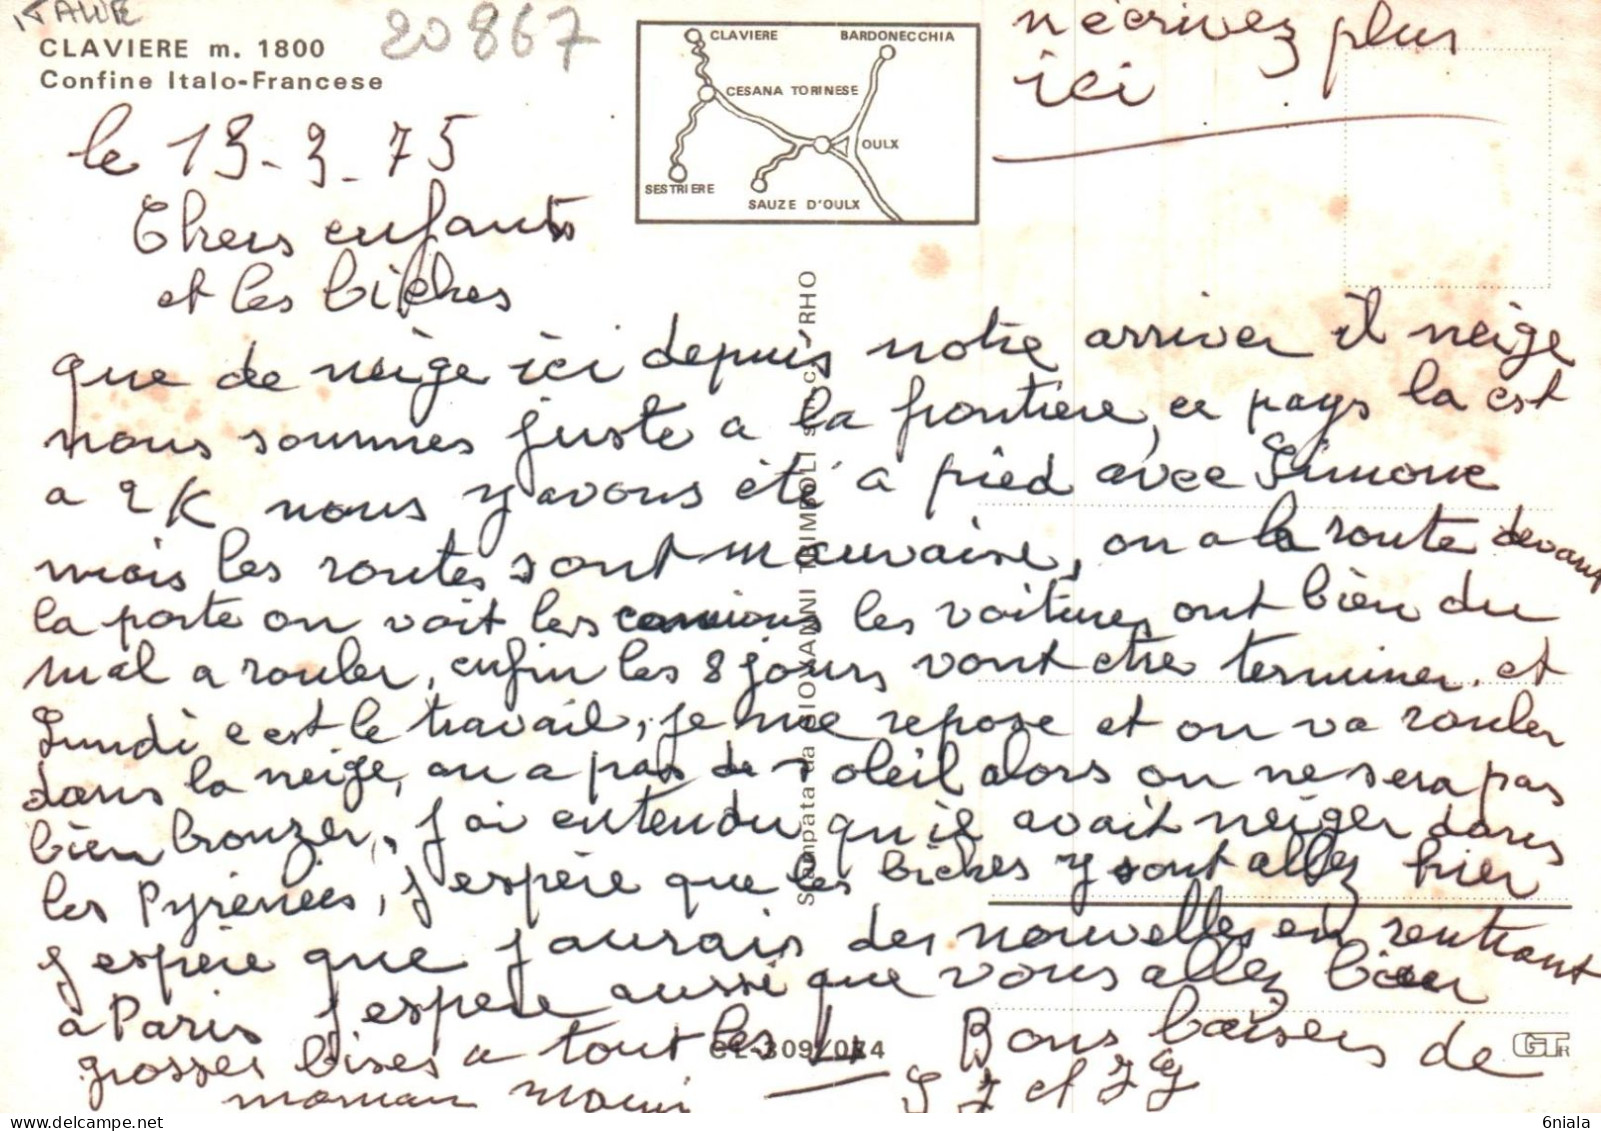 ITALIE
CLAVIERE m. 1800
Confine Italo-Francese
20867
CLAVIERE
BARDONECCHIA
CESANA TORINESE
OULX
SESTRIERE
SAUZE D'OULX
n'écrivez plus
ici
le 13-3-75
Chers enfants
et les biches
que de neige ici depuis notre arriver il neige
nous sommes juste a la frontiere, ce pays la est
a 2K nous y avons été a pied avec Simone
mais les routes sont mauvaise, on a la route devant
la porte on voit les camions les voitures ont bien du
mal a rouler, enfin les 8 jours vont etre terminer. et
Lundi c est le travail, je me repose et on va rouler
dans la neige, on a pas de soleil alors on ne sera pas
bien bronzer, j'ai entendu qu'il avait neiger dans
les Pyrénées, j'espère que les biches y sont allez hier
j espère que j aurais des nouvelles en rentrant
a Paris j espere aussi que vous allez bien
grosses bises a tout les 4 Bons baisers de
maman
et JG
Stampata da GIOVANNI TRIMBOLI s.c. RHO
CL-309/074
GT
6niala